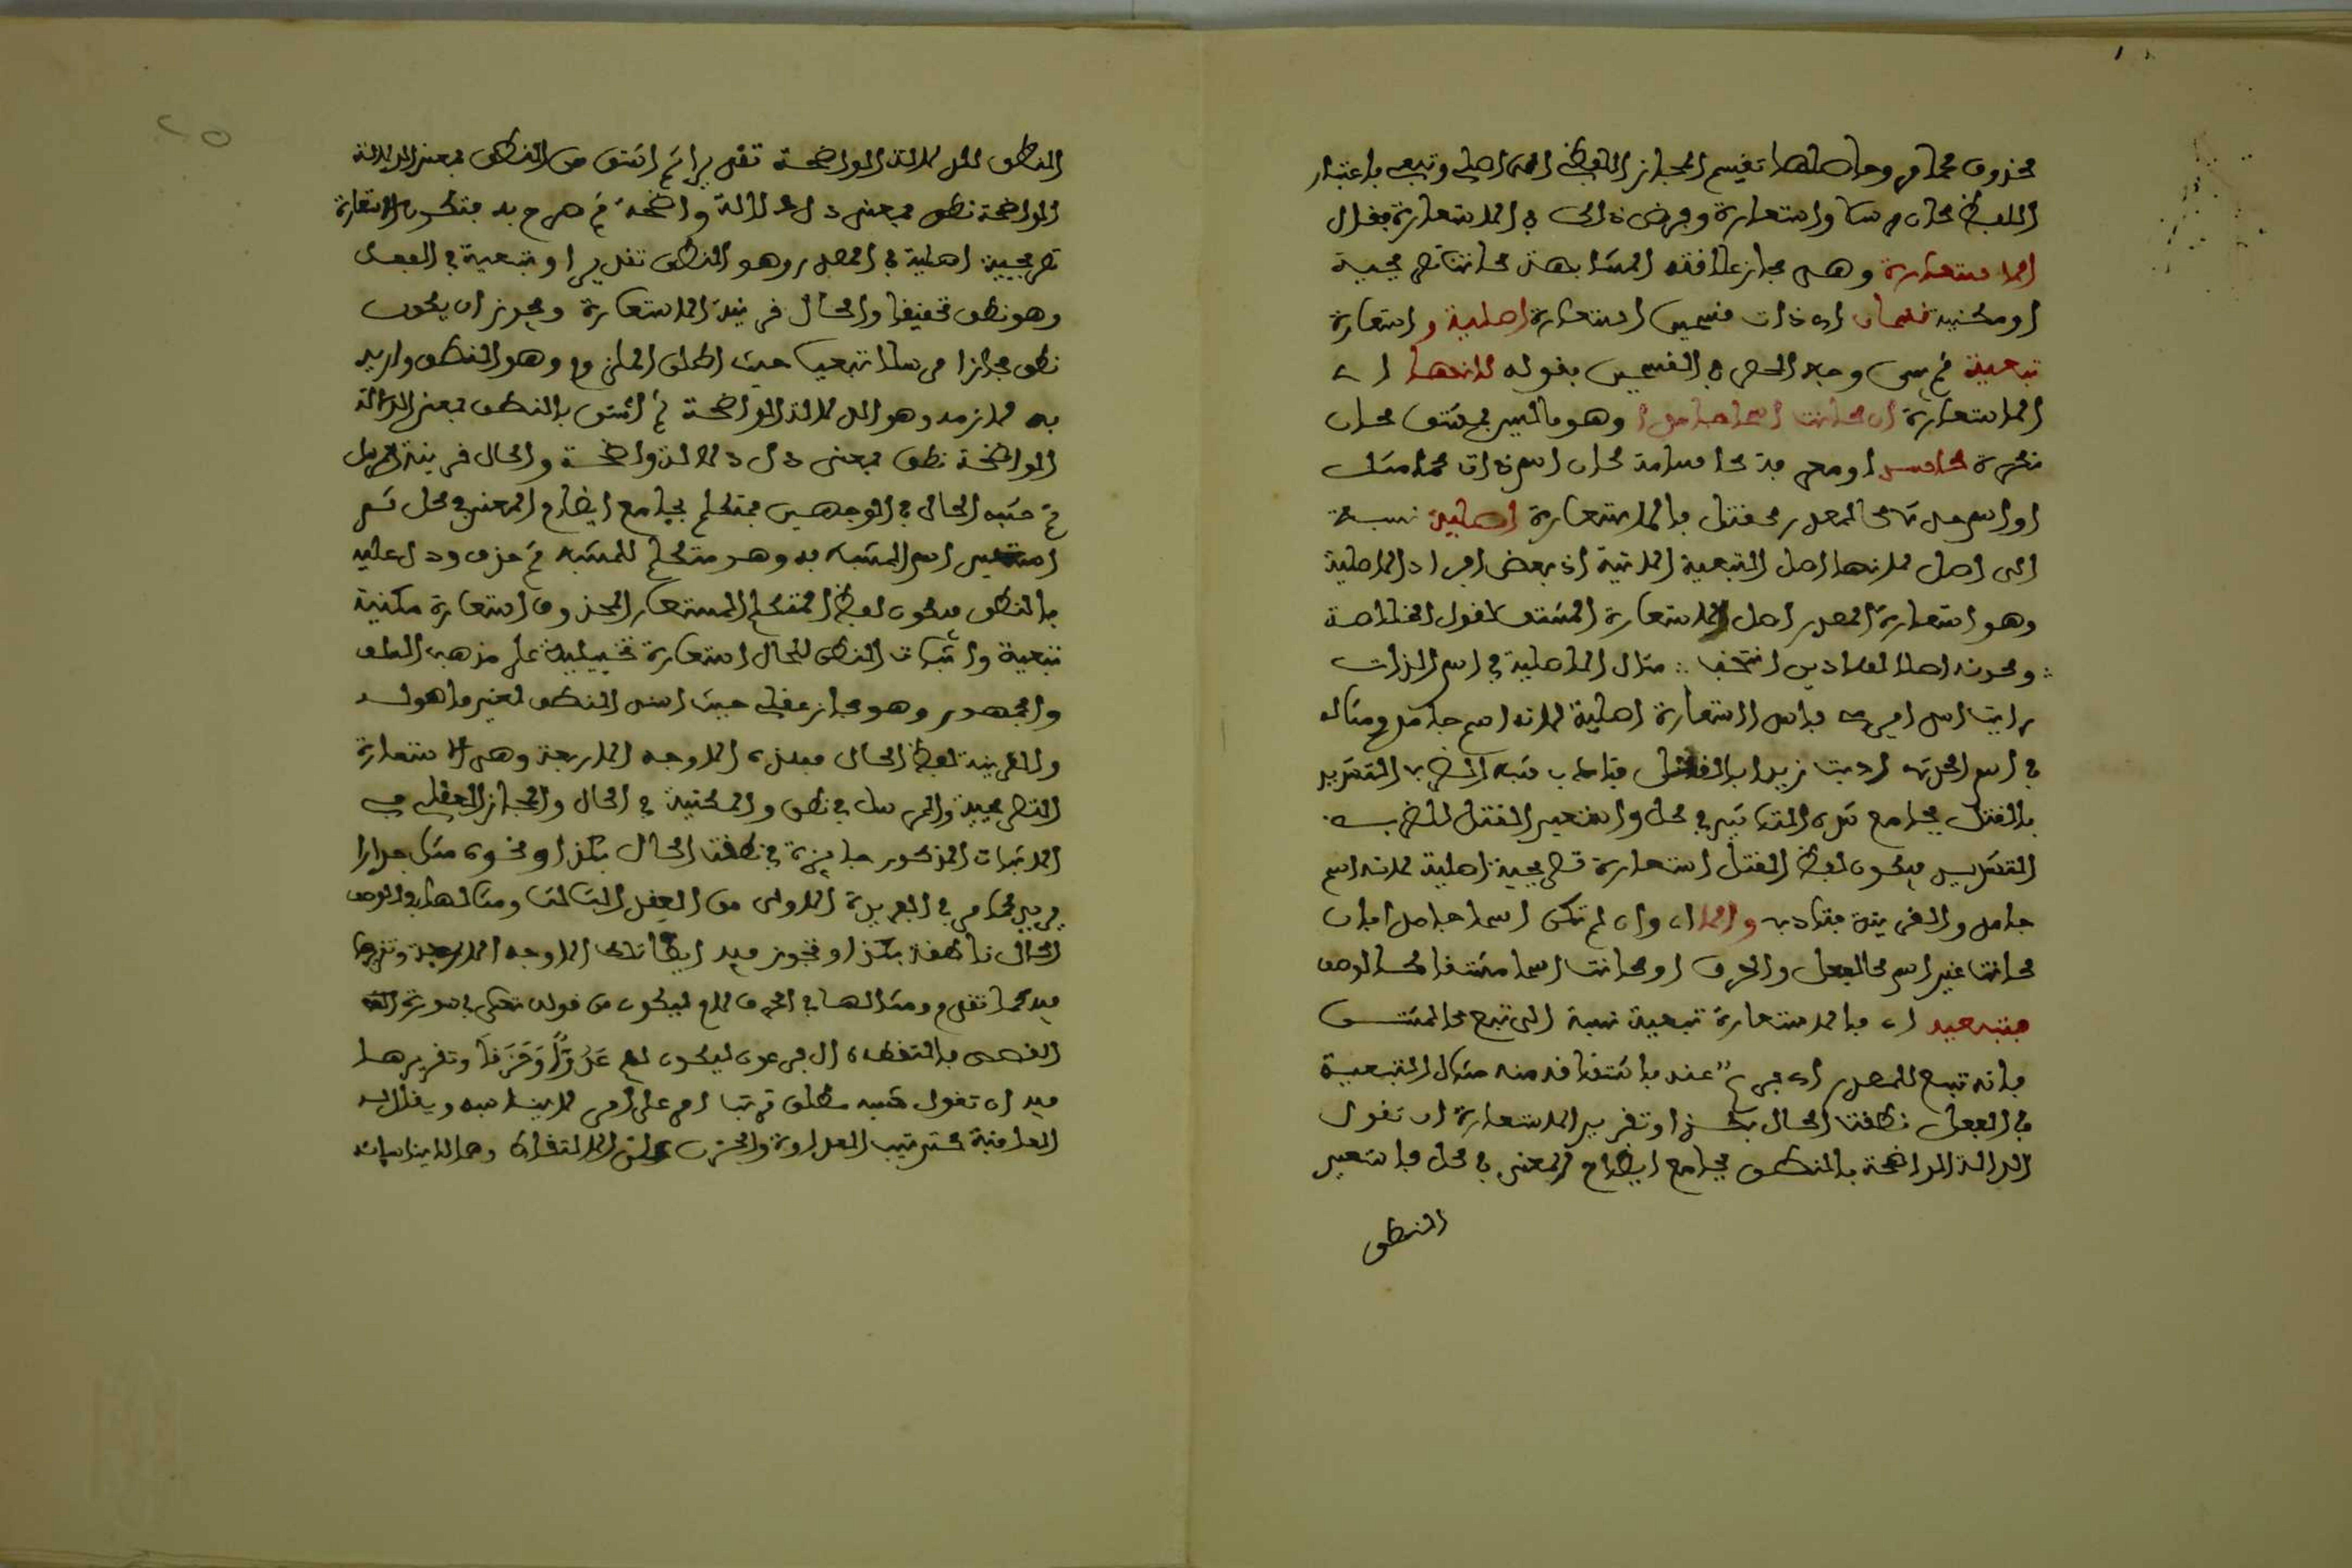 محذوف كما مر وحاصلها تقسيم المجاز اللفظي الى اصلي وتبعي باعتبار
اللفظ كان مرسلا واستعارة وفرض ذلك في الاستعارة فقال
الاستعارة وهي مجاز علاقته المشابهة كانت تصريحية
او مكنية قسمان اي ذات قسمين استعارة اصلية واستعارة
تبعية ثم بين وجه الحصر في القسمين بقوله لانها اي
الاستعارة ان كانت اسما جامدا وهو ما ليس بمشتق كان
نكرة كاسد او معرفة كاسامة كان اسم ذات كما مثل
او اسم حدث كالمصدر كقتل فالاستعارة اصلية نسبة
الى اصل لانها اصل التبعية الاتية اذ بعض افراد الاصلية
وهو استعارة المصدر اصل الاستعارة المشتق لقول الخلاصة
وكونه اصلا لهاذين انتخب مثال الاصلية في اسم الذات
رايت اسدا يرمي فاسد استعارة اصلية لانه اسم جامد ومثاله
في اسم الحدث اذيت زيدا بالقتل شبه الضرب الشديد
بالقتل بجامع شدة التاثير في كل واستعير القتل للضرب
الشديد فيكون لفظ القتل استعارة تصريحية اصلية لانه اسم
جامد والقرينة والا اي وان لم تكن اسما جامدا بان
كانت غير اسم كالفعل والحرف او كانت اسما مشتقا كالوصف
فتبعية اي فالاستعارة تبعية نسبة الى تبع كالمشتق
فانه تبع للمصدر اي فرع عنه باشتقاقه منه مثال التبعية
في الفعل نطقت الحال بكذا وتقرير الاستعارة ان تقول
الدلالة الواضحة بالنطق بجامع ايضاح المعنى في كل فاستعير
النطق
النطق للدلالة الواضحة تقديرا ثم اشتق من النطق بمعنى الدلالة
الواضحة نطق بمعنى دل دلالة واضحة ثم صرح به فتكون الاستعارة
تصريحية اصلية في المصدر وهو النطق تقديرا وتبعية في الفعل
وهو نطق تحقيقا والحال قرينة الاستعارة ويجوز ان يكون
نطق مجازا مرسلا تبعيا حيث اطلق الملزوم وهو النطق واريد
به لازمه وهو الدلالة الواضحة ثم اشتق بالنطق بمعنى الدلالة
الواضحة نطق بمعنى دل دلالة واضحة والحال قرينة
ثم شبه الحال في الوجهين بمتكلم بجامع ايضاح المعنى في كل ثم
استعير اسم المشبه به وهو متكلم للمشبه ثم حذف ودل عليه
بالنطق فيكون لفظ المتكلم المستعار المحذوف استعارة مكنية
تبعية واثبات النطق للحال استعارة تخييلية على مذهب السلف
والجمهور وهو مجاز عقلي حيث اسند النطق لغير ما هو له
والقرينة لفظ الحال فهذه الاوجه الاربعة وهي الاستعارة
التصريحية والمرسل في نطق والمكنية في الحال والمجاز العقلي في
الاثبات المذكور جايزة في نطقت الحال بكذا ونحوه مثل جدارا
يريد كما مر في الفريدة الاولى من العقد الثالث ومثالها في الوصف
الحال ناطقة بكذا وتجوز فيه ايضا تلك الاوجه الاربعة وتقريرها
فيه كما تقدم ومثالها في الحرف لام ليكون من قوله تعالى في سورة
القصص فالتقطه ال فرعون ليكون لهم عَدُوًّا وَحَزَناً وتقريرها
فيه ان تقول شبه مطلق ترتب امر على امر لا يناسبه ويقال له
العاقبة كترتيب العداوة والحزن على الالتقاط وهما لا يناسبانه